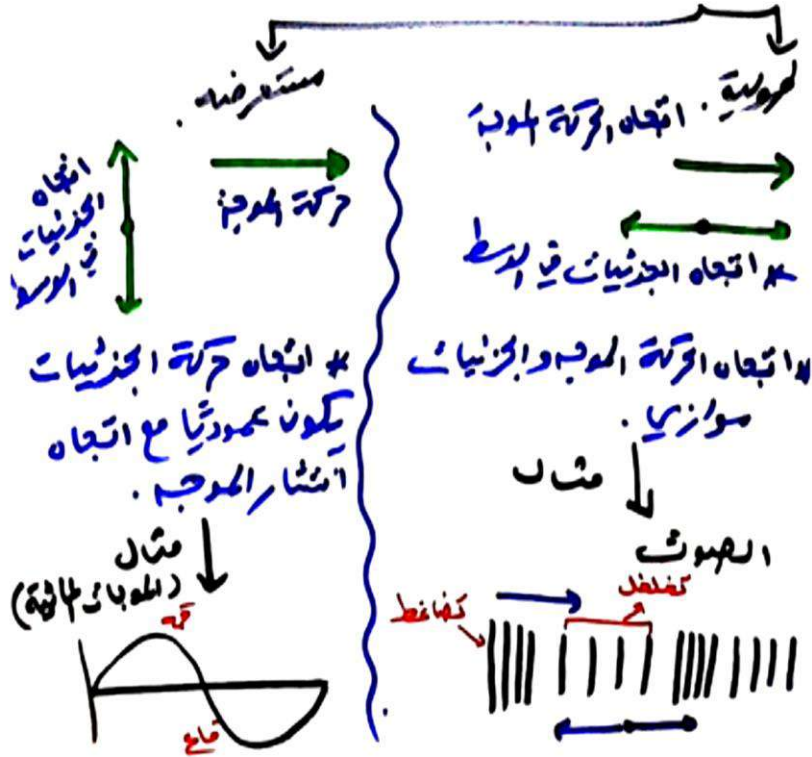 طولية.
اتجاه الحركة الموجة
* اتجاه الجزئيات في الوسط
* اتجاه الحركة الموجه والجزئيات
موازي.
مثال
الصوت
تضاغط
تخلخل
مستعرضه.
حركة الموجة
اتجاه
الجزئيات
في
الوسط
* اتجاه حركة الجزئيات
يكون عموديًا مع اتجاه
انتشار الموجه.
مثال
(الموجات المائية)
قمه
قاع